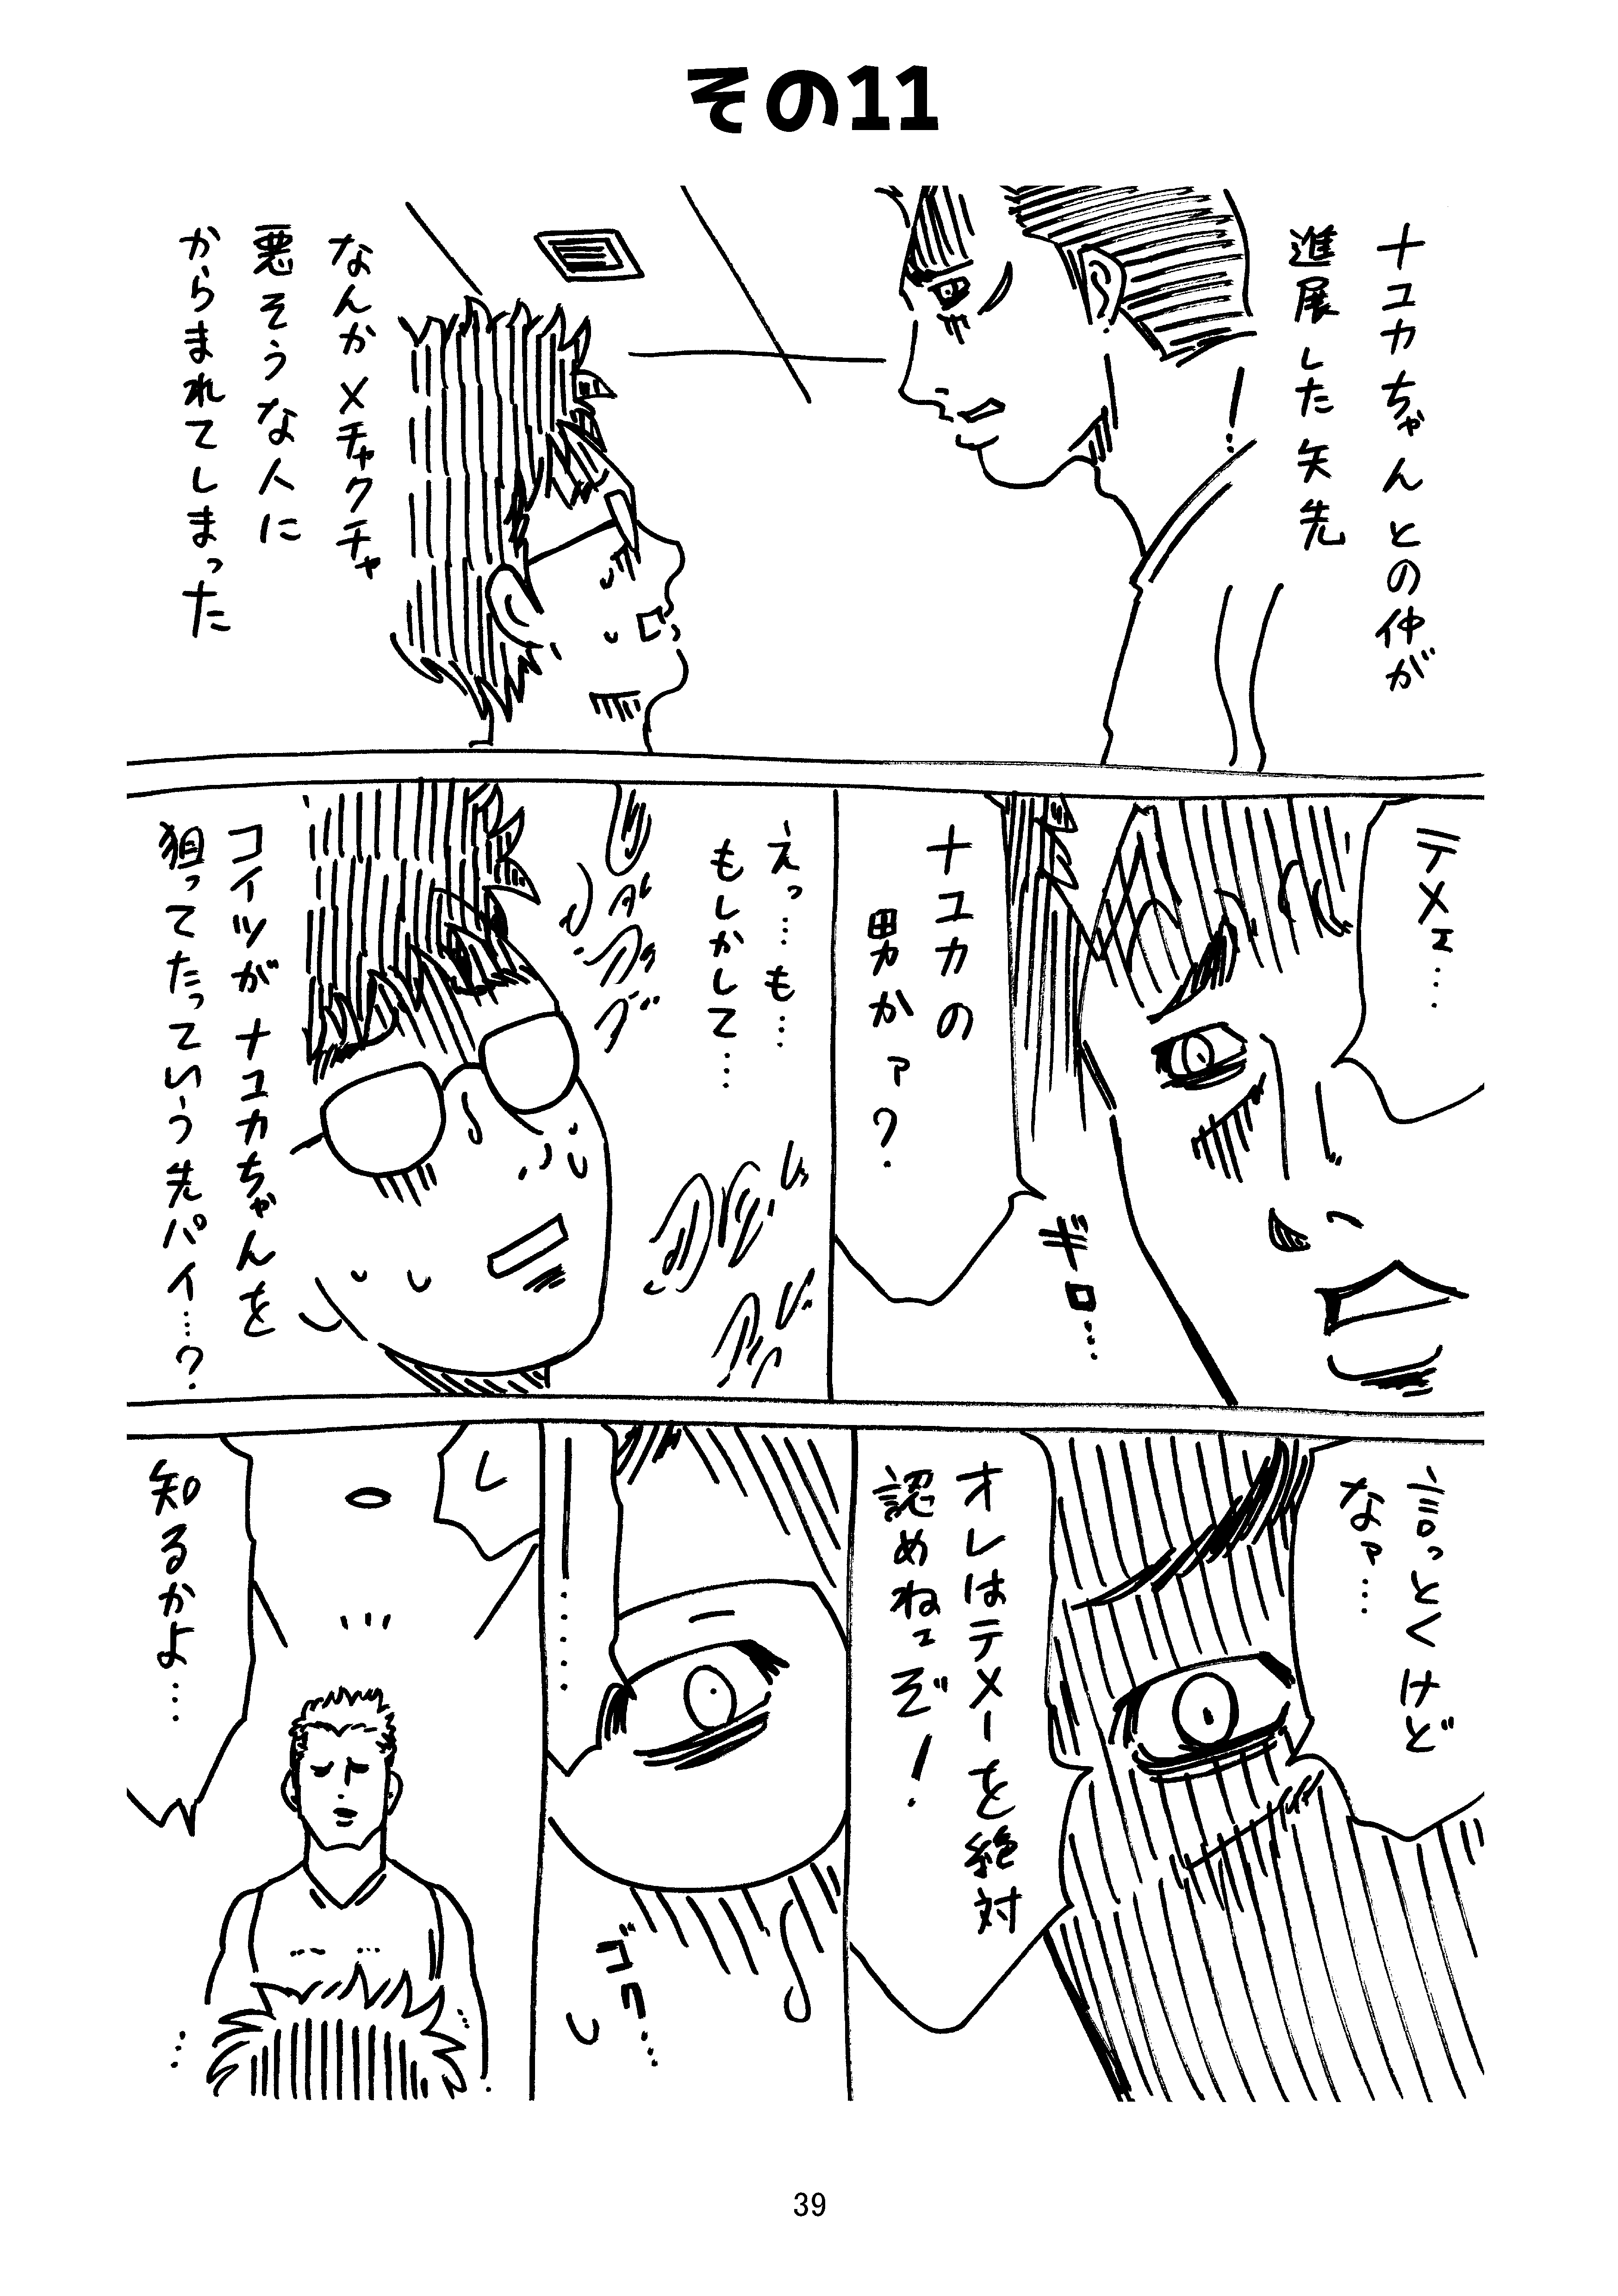 その11
ナユカちゃんとの仲が
進展した矢先
なんかメチャクチャ
悪そうな人に
からまれてしまった
テメェ…
ギロ…
ナユカの
男かァ?
えっ…も…
もしかして…
コイツがナユカちゃんを
狙ってたっていう先パイ…?
言っとくけど
なァ…
オレはテメーを絶対
認めねェぞ!
ゴク…
レ
知るかよ…
39